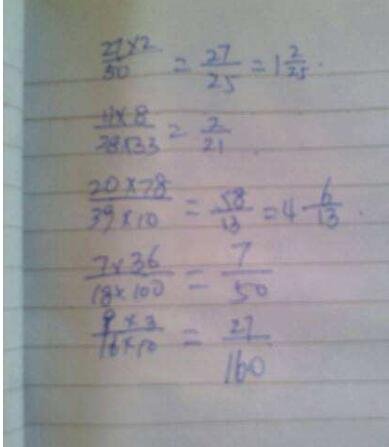 27×2/50 = 27/25 = 1 2/25.
4×8/28×33 = 2/21.
20×78/39×10 = 58/13 = 4 6/13.
7×36/18×100 = 7/50
9×3/16×10 = 27/160